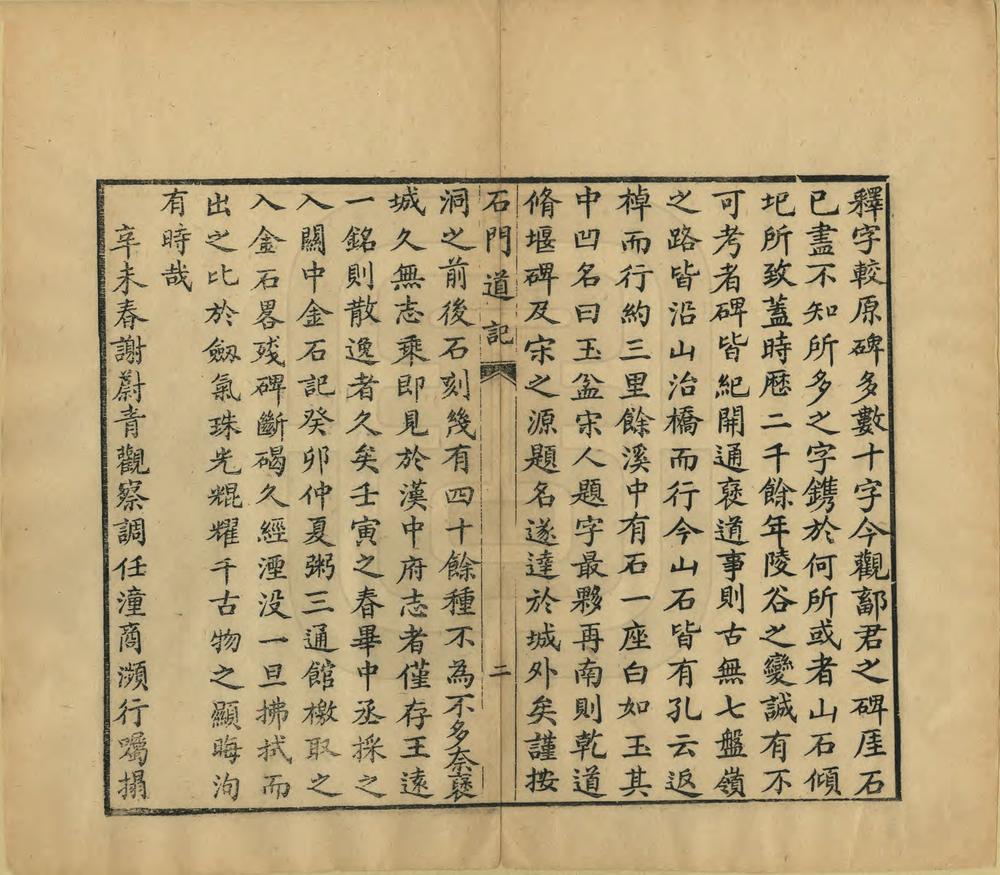 釋字較原碑多數十字今觀鄐君之碑厓石
已盡不知所多之字鐫於何所或者山石傾
圯所致蓋時歷二千餘年陵谷之變誠有不
可考者碑皆紀開通褒道事則古無七盤嶺
之路皆沿山治橋而行今山石皆有孔云返
棹而行約三里餘溪中有石一座白如玉其
中凹名曰玉盆宋人題字最夥再南則乾道
脩堰碑及宋之源題名遂達於城外矣謹按
石門道記 二
洞之前後石刻幾有四十餘種不為不多奈褒
城久無志乘即見於漢中府志者僅存王遠
一銘則散逸者久矣壬寅之春畢中丞採之
入關中金石記癸卯仲夏粥三通館檄取之
入金石畧殘碑斷碣久經湮没一旦拂拭而
出之比於劔氣珠光焜耀千古物之顯晦洵
有時哉
辛未春謝蔚青觀察調任潼商瀕行囑搨